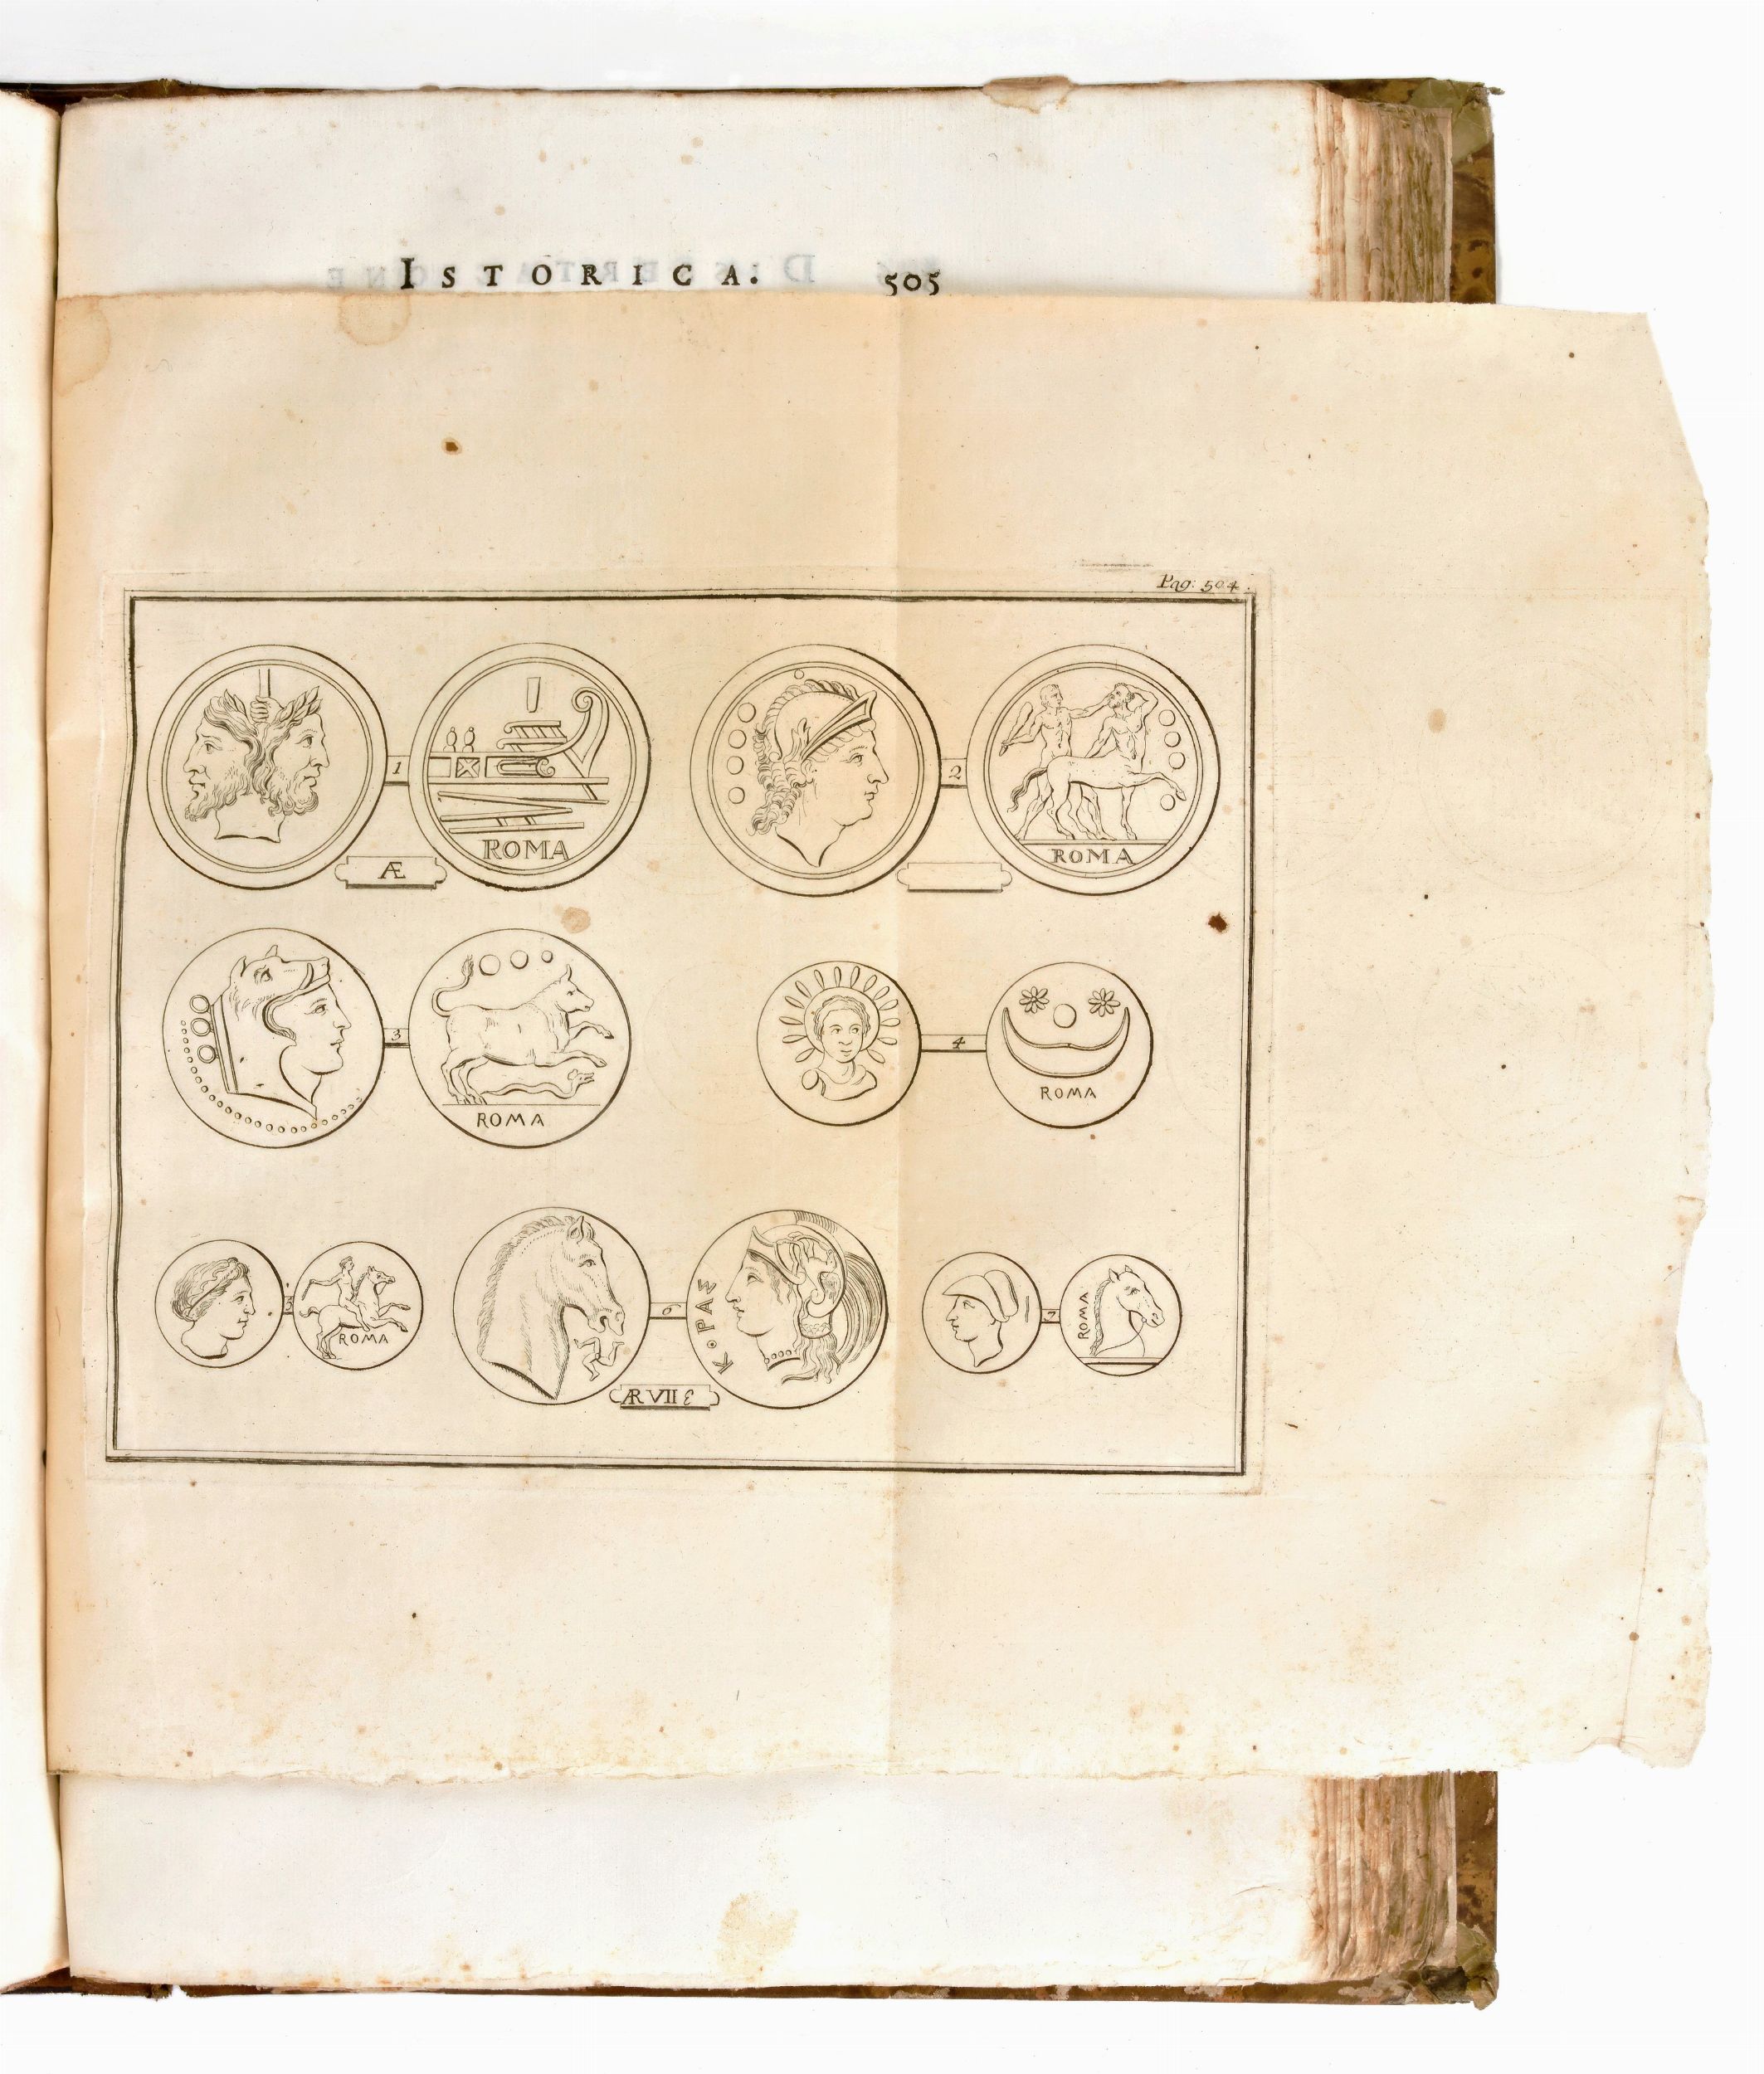 ISTORICA. 505
Pag: 504.
1
2
ROMA
ROMA
Æ
3
4
ROMA
ROMA
5
6
7
ROMA
ROMA
Κ·ΡΑΣ
ÆR VII Ɛ